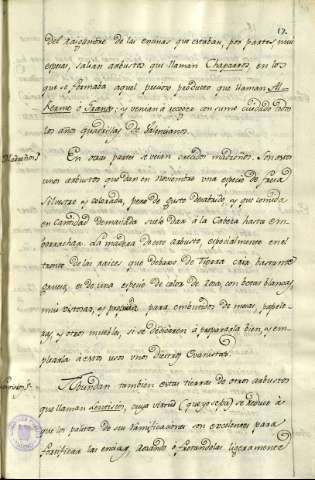 17.
del raigambre de las encinas que estaban, por partes mui
espesas, salian arbustos que llaman Chaparros, en los
que se formaba aquel precioso producto que llaman
o Grana; y venian a recoger con sumo cuidado todos
los años quadrillas de Valencianos.
Madroños.
En otras partes se veian crecidos madroños. Son estos
unos arbustos que dan en Noviembre una especie de fresa
silvestre y colorada, pero de gusto desabrido, y que comida
en cantidad demasiada suele dar a la Cabeza hasta em-
borrachar. La madera de este arbusto, especialmente en el
tronco de las raices que debaxo de tierra cria bastante
gruesa, es de una especie de color de rosa, con betas blancas
mui vistosas, es para embutidos de mesas, papele-
ras, y otros muebles, si se dedicaren à prepararla bien, y em-
plearla à estos usos unos diestros Evanistas.
Abundan tambien estas tierras de otros arbustos
que llaman cuya virtud (que yo sepa) se reduce à
que los palitos de sus ramificaciones son excelentes para
fortificar las encias, ò frotandolas ligeramente